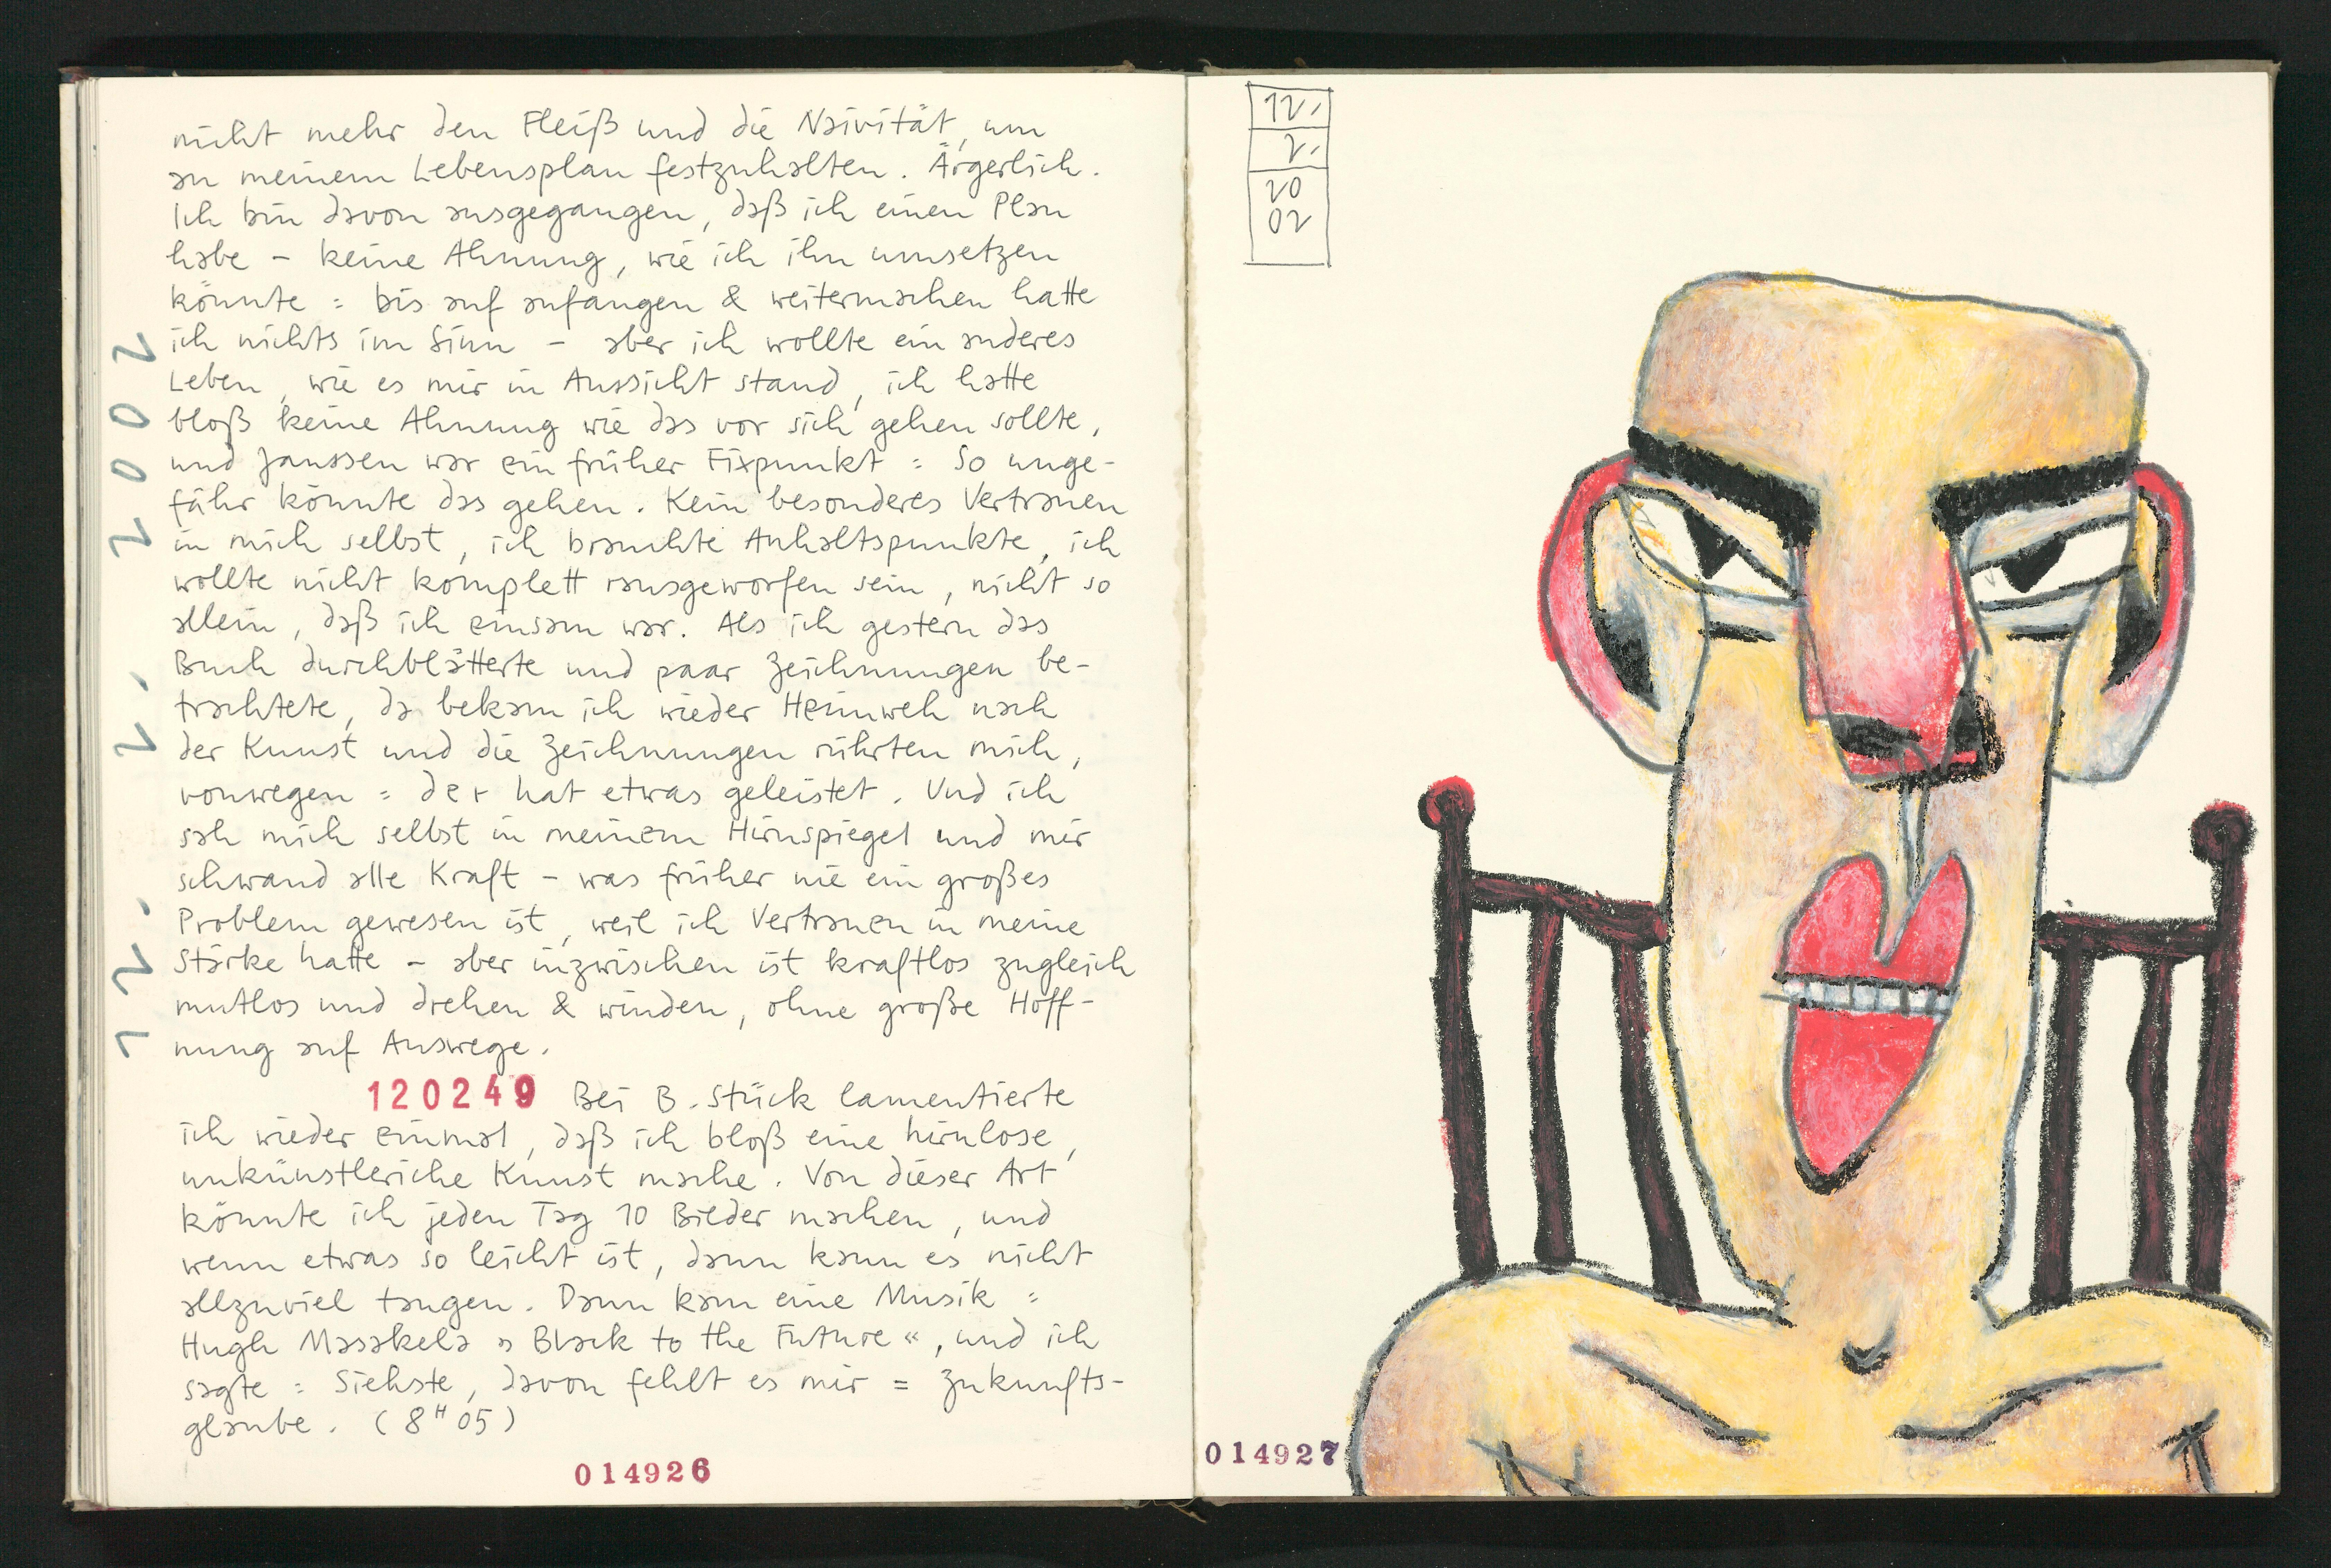 nicht mehr den Fleiß und die Naivität, um
an meinem Lebensplan festzuhalten. Ärgerlich.
Ich bin davon ausgegangen, daß ich einen Plan
habe – keine Ahnung, wie ich ihn umsetzen
könnte = bis auf anfangen & weitermachen hatte
ich nichts im Sinn – aber ich wollte ein anderes
Leben, wie es mir in Aussicht stand, ich hatte
bloß keine Ahnung wie das vor sich gehen sollte,
und Janssen war ein früher Fixpunkt = So unge-
fähr könnte das gehen. Kein besonderes Vertrauen
in mich selbst, ich brauchte Anhaltspunkte, ich
wollte nicht komplett rausgeworfen sein, nicht so
allein, daß ich einsam war. Als ich gestern das
Buch durchblätterte und paar Zeichnungen be-
trachtete, da bekam ich wieder Heimweh nach
der Kunst und die Zeichnungen rührten mich,
vonwegen = der hat etwas geleistet. Und ich
sah mich selbst in meinem Hirnspiegel und mir
schwand alle Kraft – was früher nie ein großes
Problem gewesen ist, weil ich Vertrauen in meine
Stärke hatte – aber inzwischen ist kraftlos zugleich
mutlos und drehen & winden, ohne große Hoff-
nung auf Auswege.
120249 Bei B. Stück lamentierte
ich wieder einmal, daß ich bloß eine hirnlose,
unkünstleriche Kunst mache. Von dieser Art
könnte ich jeden Tag 10 Bilder machen, und
wenn etwas so leicht ist, dann kann es nicht
allzuviel taugen. Dann kam eine Musik =
Hugh Masakela » Black to the Future «, und ich
sagte = Siehste, davon fehlt es mir = Zukunfts-
glaube. (8 H 05)
014926
12. 2. 2002
12.
2.
20
02
014927